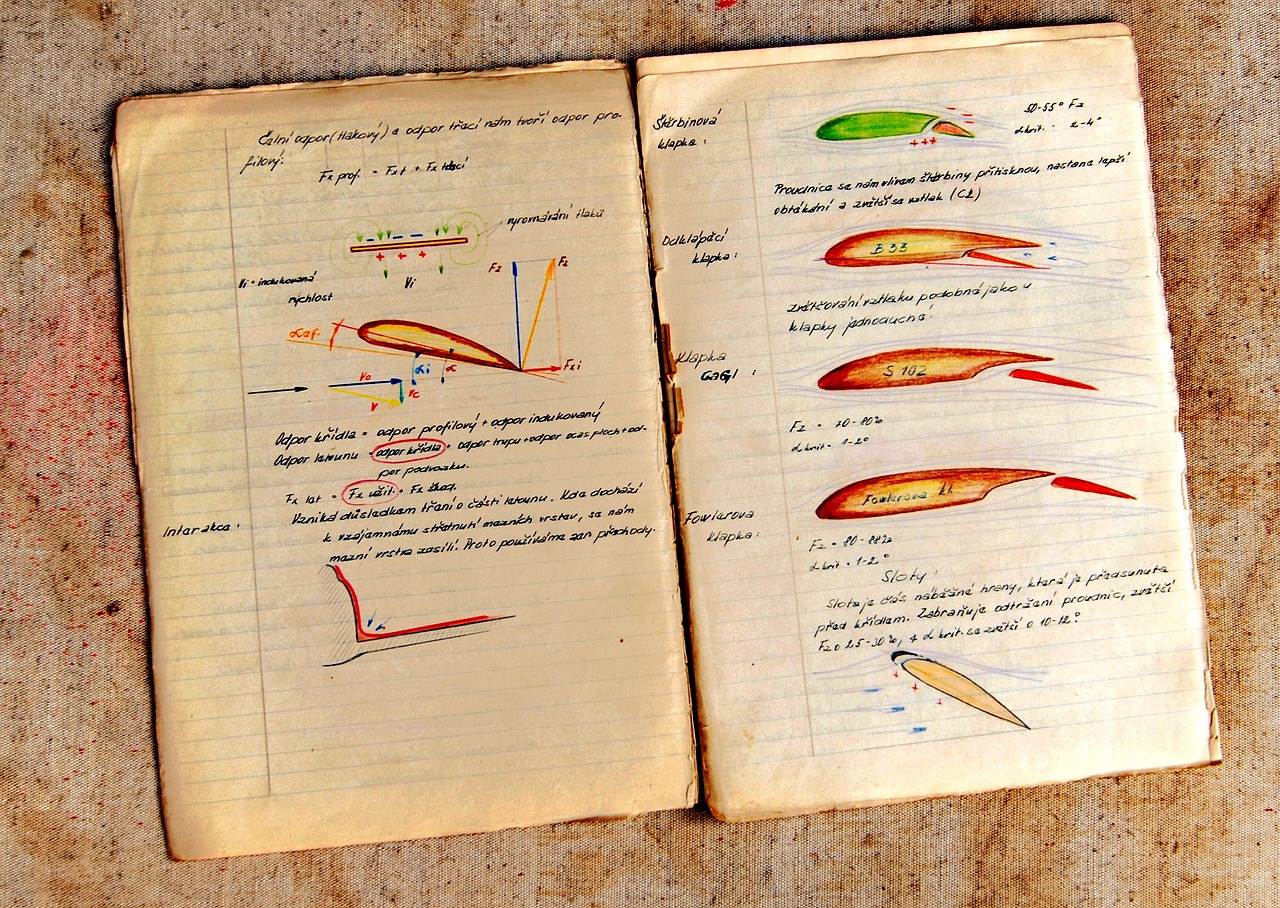 Čelní odpor (tlakový) a odpor třecí nám tvoří odpor pro-
filový:
Fx prof. = Fxt + Fx třecí
vyrovnávání tlaků
Vi
Vi = indukovaná
rychlost
Fz
Fz
αef.
αi
α
Fxi
Vo
Vc
V
Odpor křídla = odpor profilový + odpor indukovaný
Odpor letounu = odpor křídla + odpor trupu + odpor ocas ploch + od-
por podvozku.
Fx let = Fx užit. + Fx škod.
Interakce:
Vzniká důsledkem tření o části letounu. Kde dochází
k vzájemnámu střetnutí mezních vrstev, se nám
mezní vrstva zesílí. Proto používáme zen přechody.
Štěrbinová
klapka:
50-55° Fz
αkrit. 2-4°
Proudnice se nám vlivem štěrbiny přitisknou, nastane lepší
obtékání a zvětší se vztlak (Cz)
Odklápěcí
klapka:
B 33
zvětšování vztlaku podobné jako u
klapky jednoduché.
Klapka
GaGl :
S 102
Fz = 70-80%
αkrit = 1-2°
Fowlerova
klapka:
Fowlerova kl.
Fz = 80-88%
αkrit = 1-2°
Sloty:
Slot je část náběžné hrany, která je předsunuta
před křídlem. Zabraňuje odtržení proudnic, zvětší
Fz o 25-30%, a αkrit. se zvětší o 10-12°